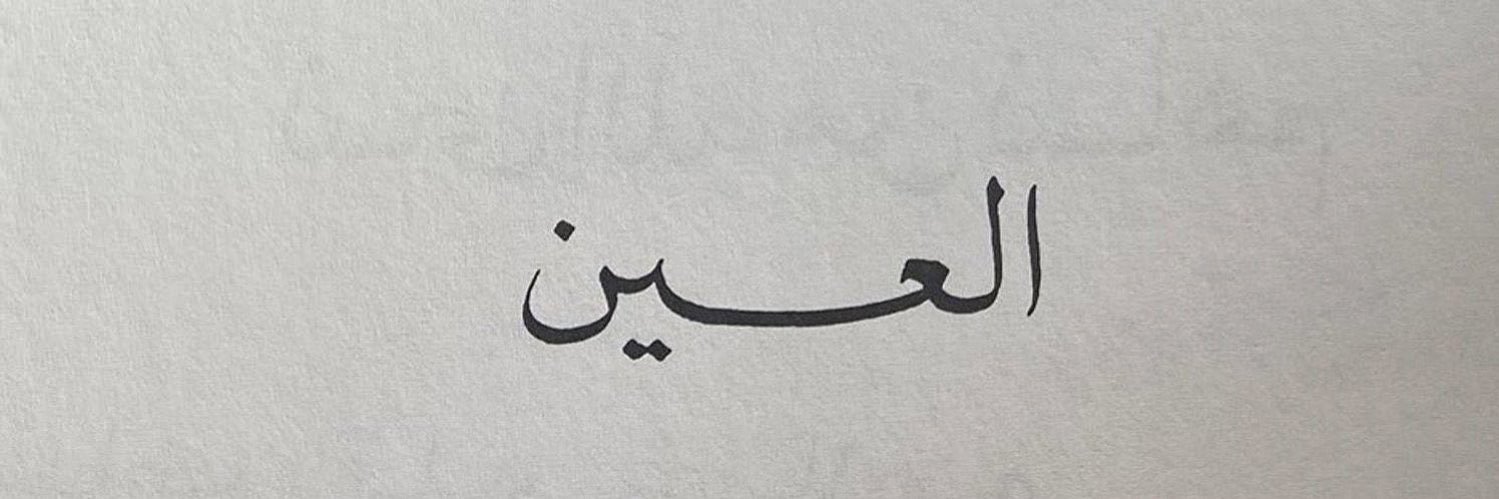 العين